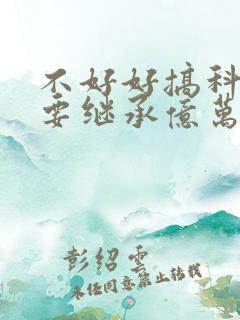 不好好搞科
要继承億萬
彭绍雲
未经同意禁止转载